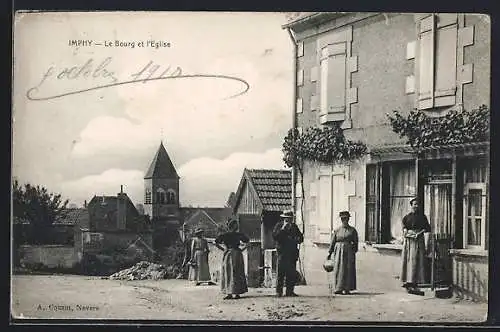 IMPHY — Le Bourg et l'Eglise
5 octobre 1910
A. Nevers